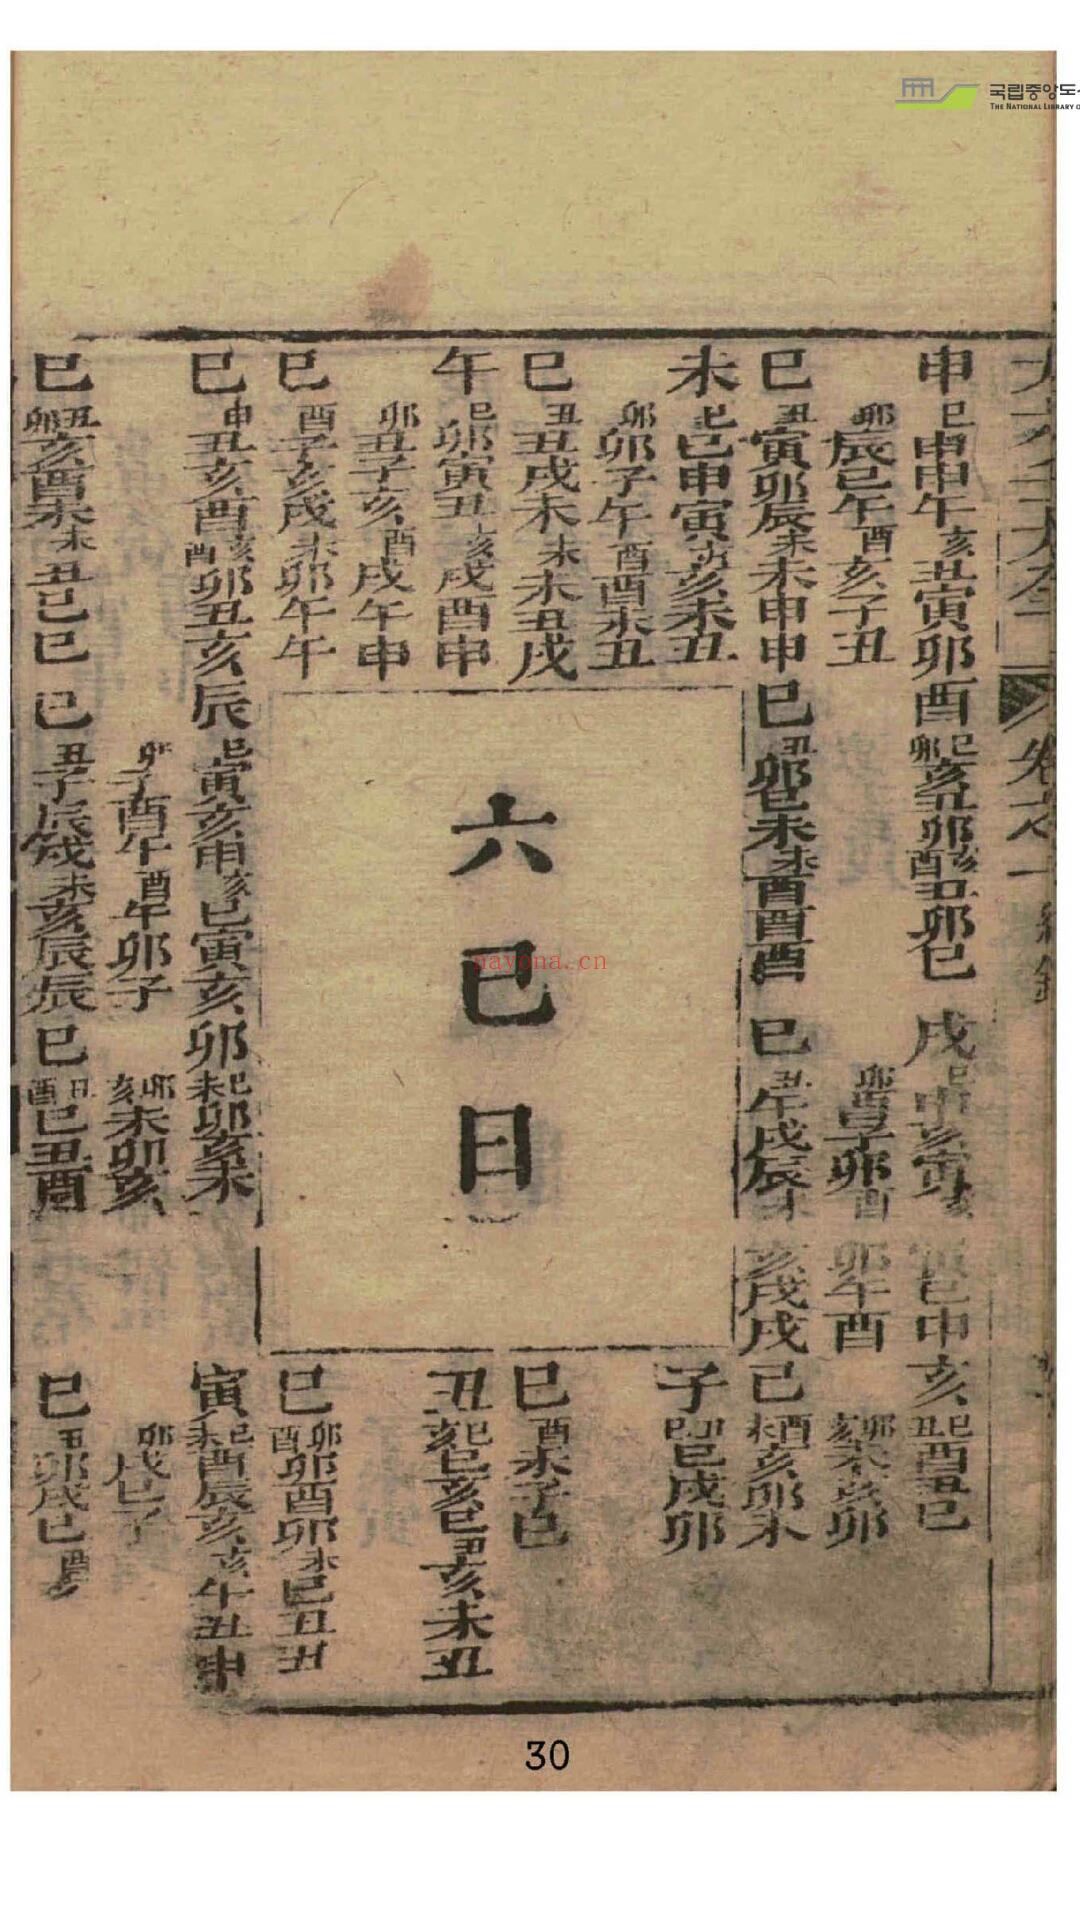 국립중앙도
THE NATIONAL LIBRARY O
申巳申申午亥丑寅卯酉巳卯亥丑卯亥酉丑卯巳戌巳申亥寅亥寅巳申亥巳丑酉丑巳
卯辰巳午酉亥子丑
卯酉子卯酉卯午酉
卯亥未亥卯
巳丑寅卯辰未未申申巳丑卯巳未未酉酉酉巳丑午戌辰未亥戌戌巳酉未亥卯未
未巳巳申寅亥亥未丑
子巳巳戌卯
卯卯子午酉酉未丑
巳丑丑戌未未未丑戌
巳酉未子巳
午巳卯寅丑亥戌酉申
丑巳亥巳亥巳丑亥未丑
卯丑子亥酉戌午申
巳酉子亥戌未卯午午
巳卯酉卯酉卯未巳丑丑
六巳日
巳申丑亥酉亥酉卯丑亥辰巳寅亥申亥巳寅亥卯巳未卯亥未寅巳未酉辰亥亥午丑申
卯子酉午酉午卯子
卯亥未卯亥
卯戌巳子
巳丑卯亥酉未未丑巳巳
巳丑子辰戌未亥辰辰
巳丑酉巳丑酉
巳丑卯戌巳酉
nayona.cn
30